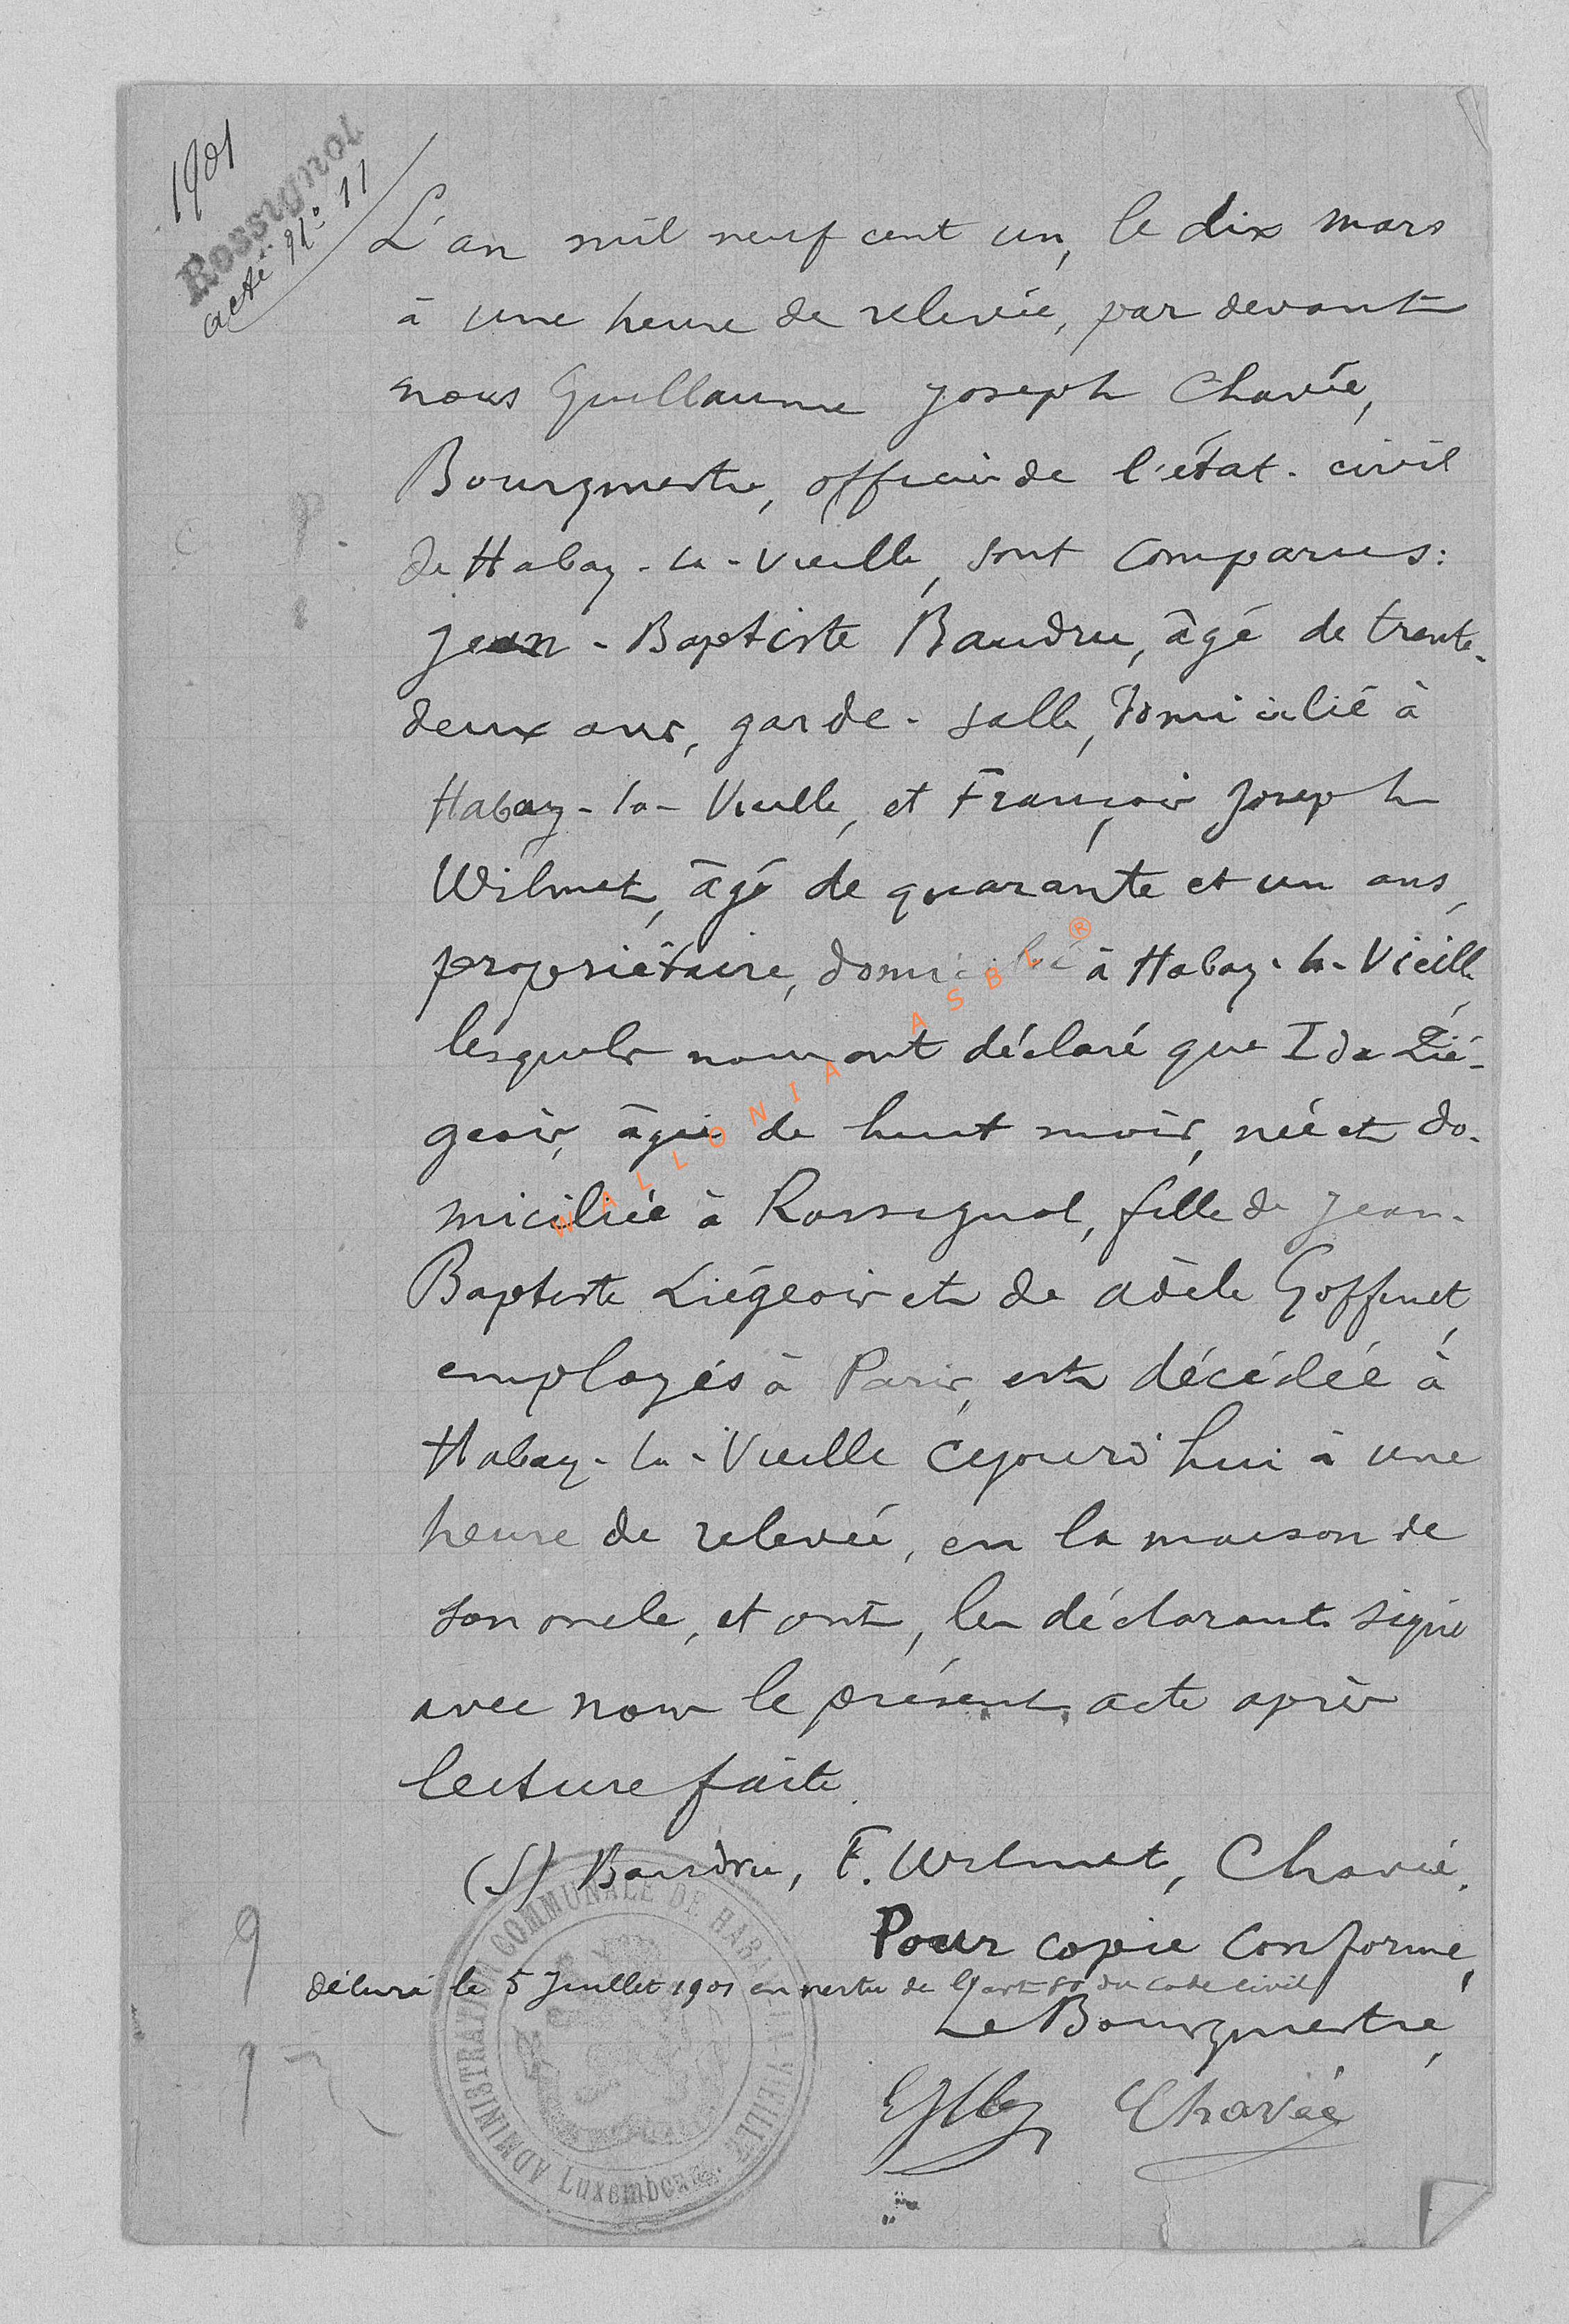 1901
Rossignol
acte n° 11
L'an mil neuf cent un, le dix mars
à une heure de relevée, par devant
nous Guillaume Joseph Chavée,
Bourgmestre, officier de l'état-civil
de Habay-la-Vieille, sont comparus:
Jean-Baptiste Baudru, âgé de trente-
deux ans, garde-salle, domicilié à
Habay-la-Vieille, et François Joseph
Wilmet, âgé de quarante et un ans,
propriétaire, domicilié à Habay-la-Vieille,
lesquels nous ont déclaré que Ida Lié-
geois, âgée de huit mois, née et do-
miciliée à Rossignol, fille de Jean-
Baptiste Liégeois et de Adèle Goffinet,
employés à Paris, est décédée à
Habay-la-Vieille cejourd'hui à une
heure de relevée, en la maison de
son oncle, et ont, les déclarants signé
avec nous le présent acte après
lecture faite.
(S) Baudru, F. Wilmet, Chavée.
Pour copie conforme,
délivré le 5 Juillet 1901 en vertu de l'art 80 du code civil
Le Bourgmestre,
Chavée
ADMINISTRATION COMMUNALE DE HABAY-LA-VIEILLE
Luxembourg
WALLONIA ASBL ®